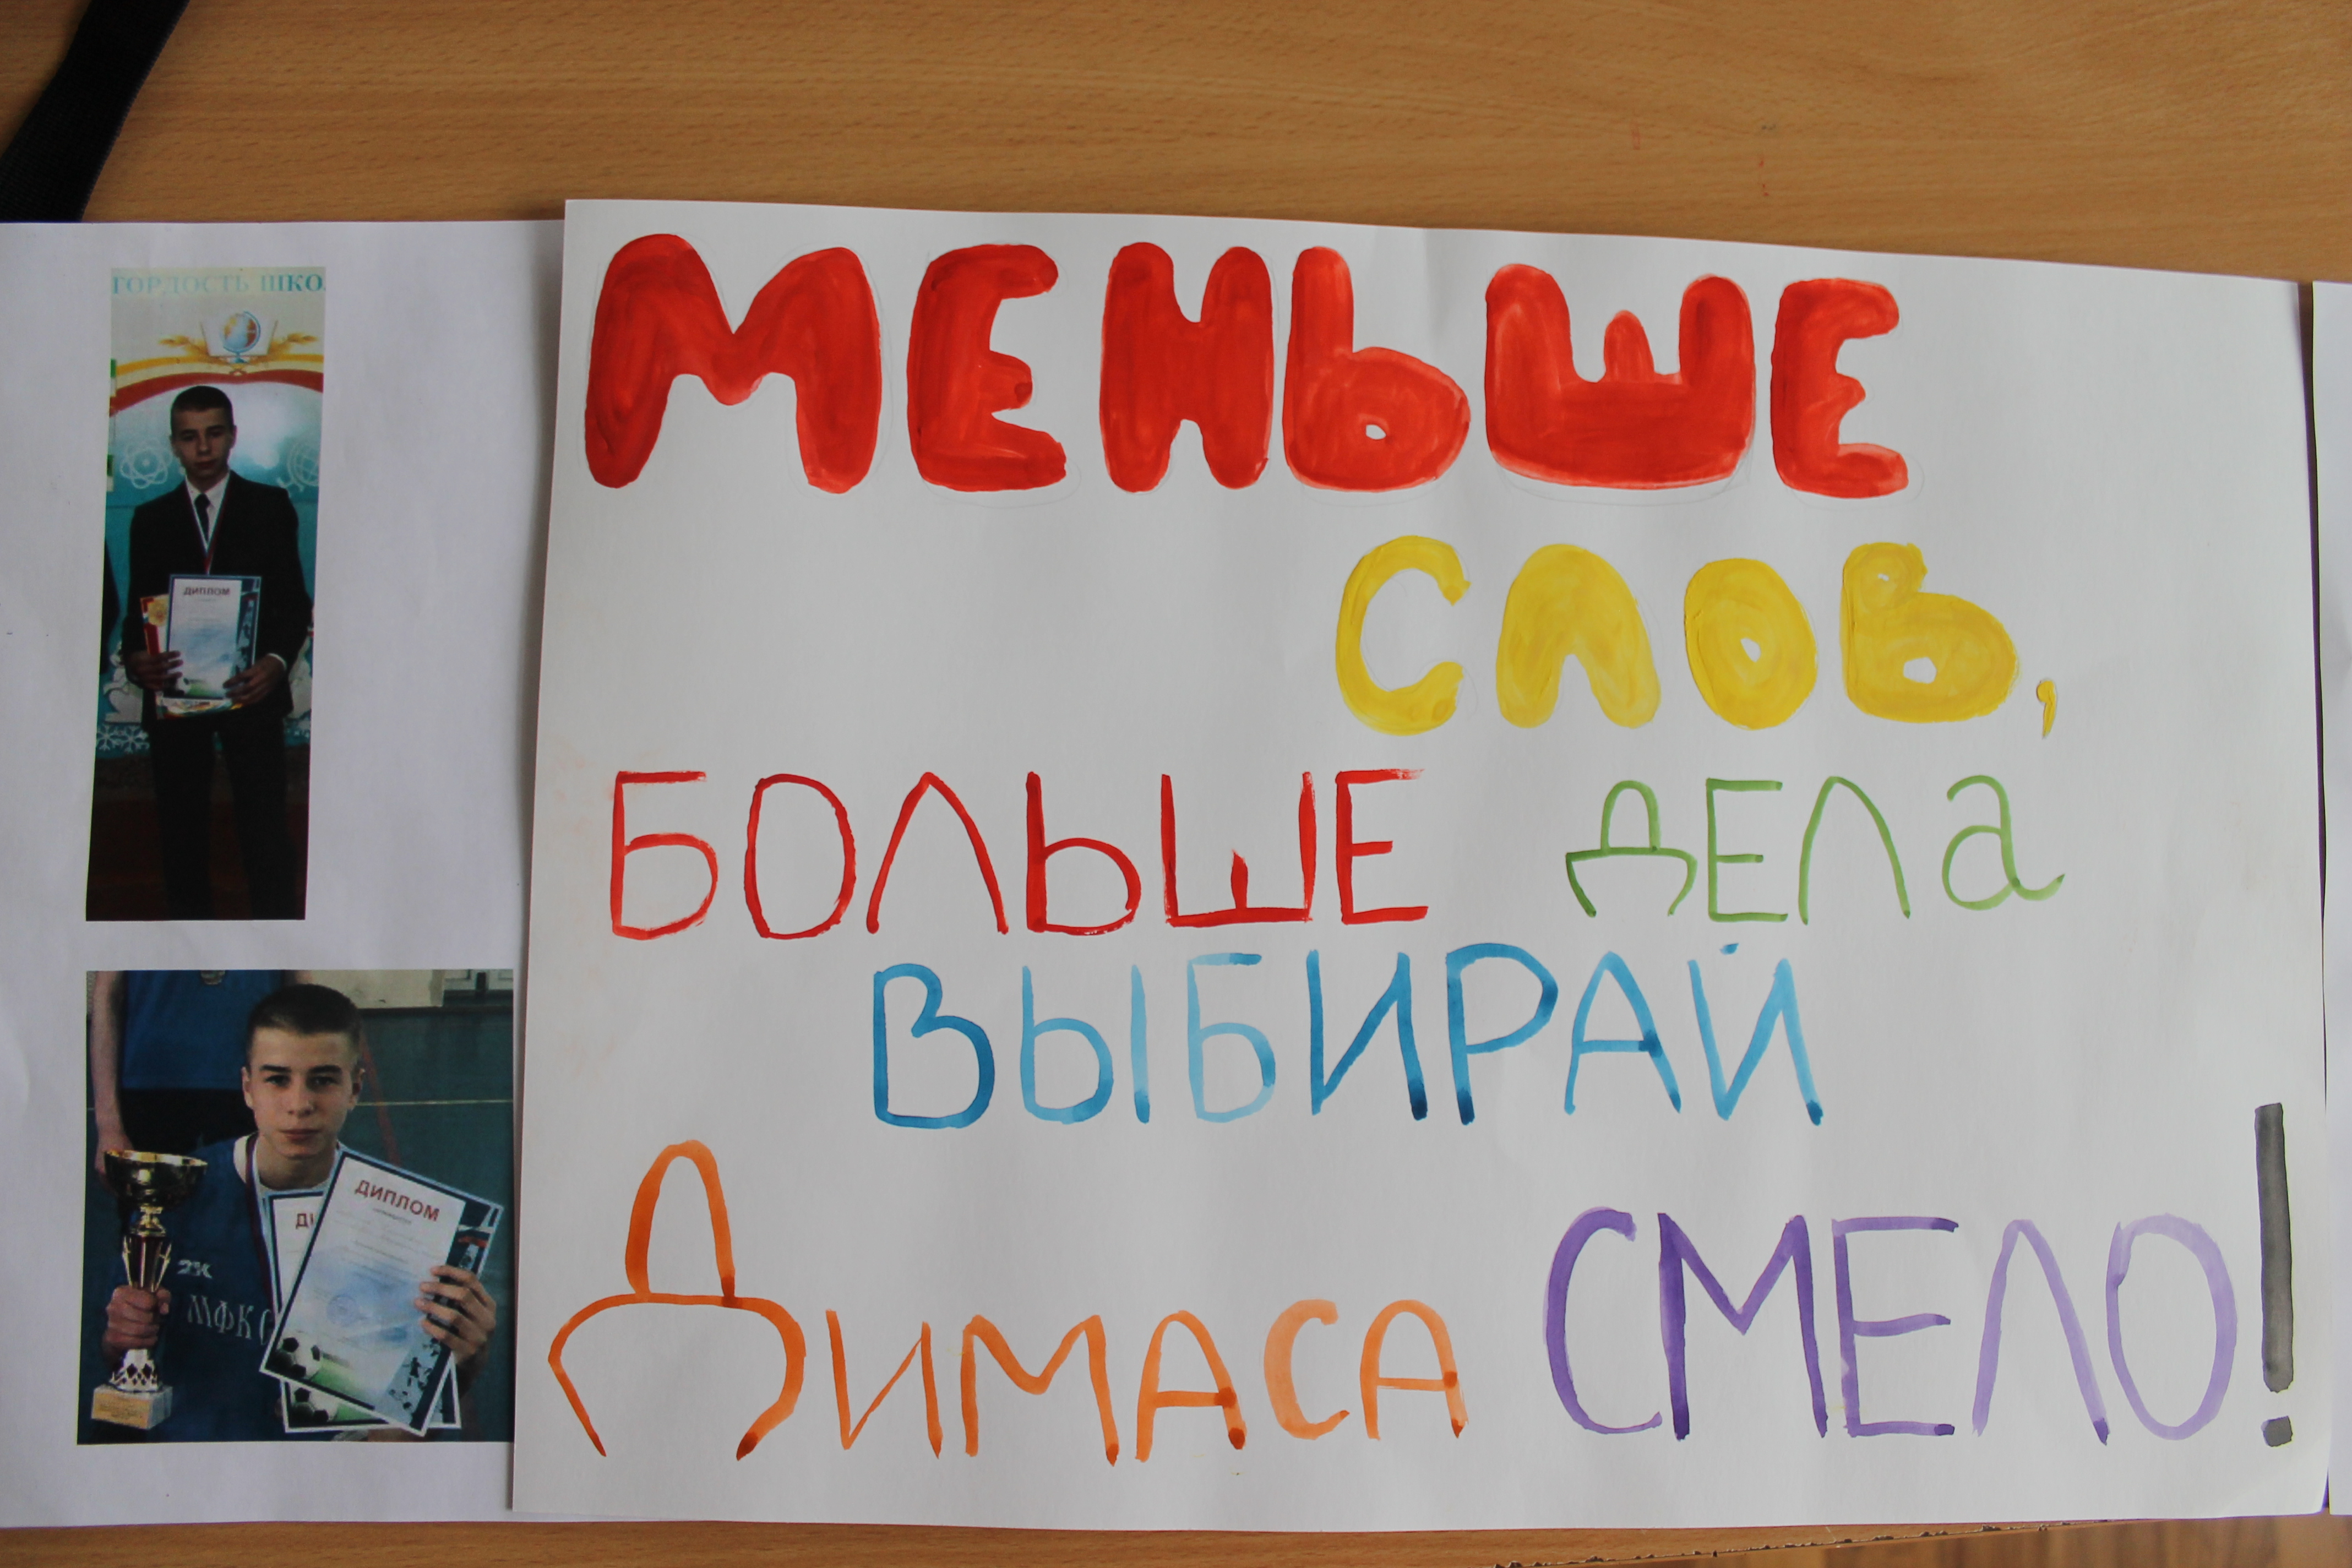 ГОРДОСТЬ ШКО
ДИПЛОМ
ДИПЛОМ
2К
МФК
МЕНЬШЕ
СЛОВ,
БОЛЬШЕ ДЕЛА
ВЫБИРАЙ
ДИМАСА СМЕЛО!